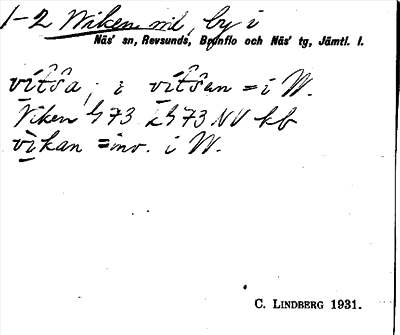 1-2 Wiken nd, by i
Näs' sn, Revsunds, Brunflo och Näs' tg, Jämtl. l.
vítŝa, i vítŝen = i W.
Viken 473 NV kb
vìkan = inv. i W.
C. LINDBERG 1931.